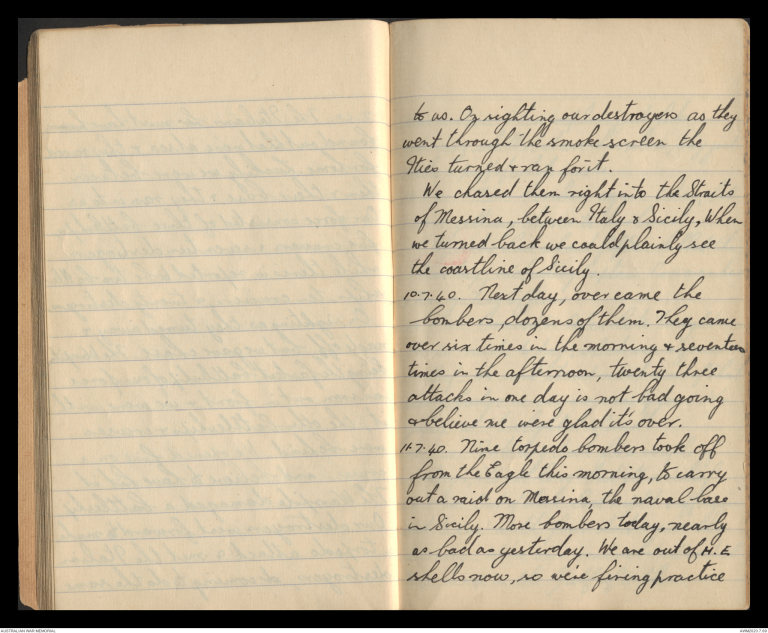 to us. On sighting our destroyers as they
went through the smoke screen the
Ities turned & ran for it.
We chased them right into the Straits
of Messina, between Italy & Sicily, When
we turned back we could plainly see
the coastline of Sicily.
10.7.40. Next day, over came the
bombers, dozens of them. They came
over six times in the morning & seventeen
times in the afternoon, twenty three
attacks in one day is not bad going
& believe me we're glad it's over.
11.7.40. Nine torpedo bombers took off
from the Eagle this morning, to carry
out a raid on Messina, the naval base
in Sicily. More bombers today, nearly
as bad as yesterday. We are out of H.E
shells now, so we're firing practice
AUSTRALIAN WAR MEMORIAL